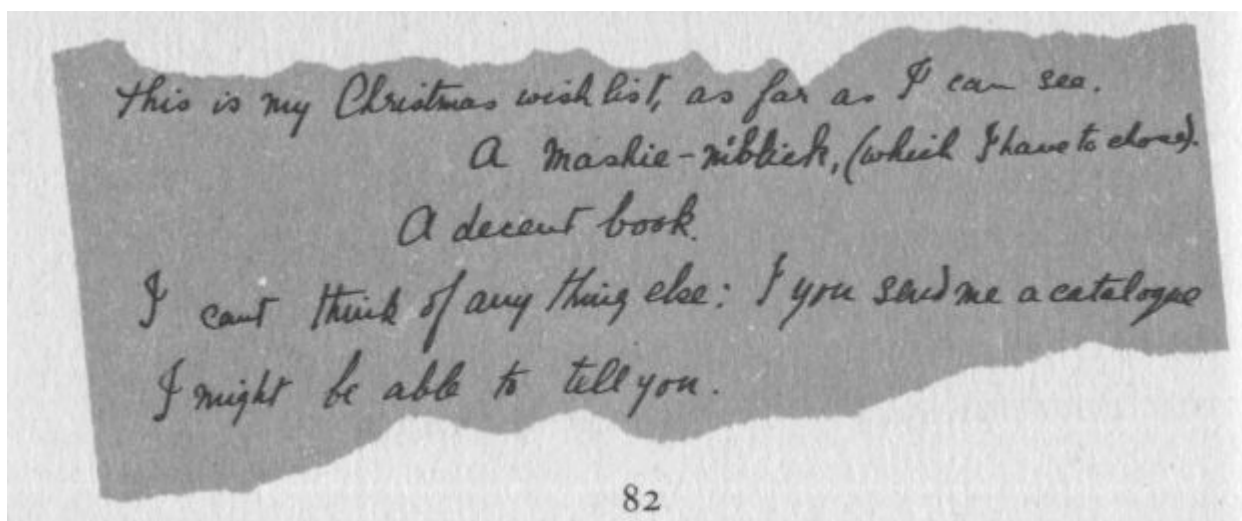 this is my Christmas wish list, as far as I can see.
A mashie-niblick, (which I have to chose).
A decent book.
I cant think of any thing else: I you send me a catalogue
I might be able to tell you.
82